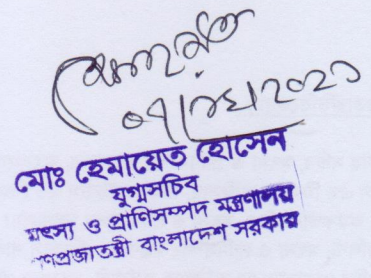 মোঃ হেমায়েত হোসেন
যুগ্মসচিব
মৎস্য ও প্রাণিসম্পদ মন্ত্রণালয়
গণপ্রজাতন্ত্রী বাংলাদেশ সরকার